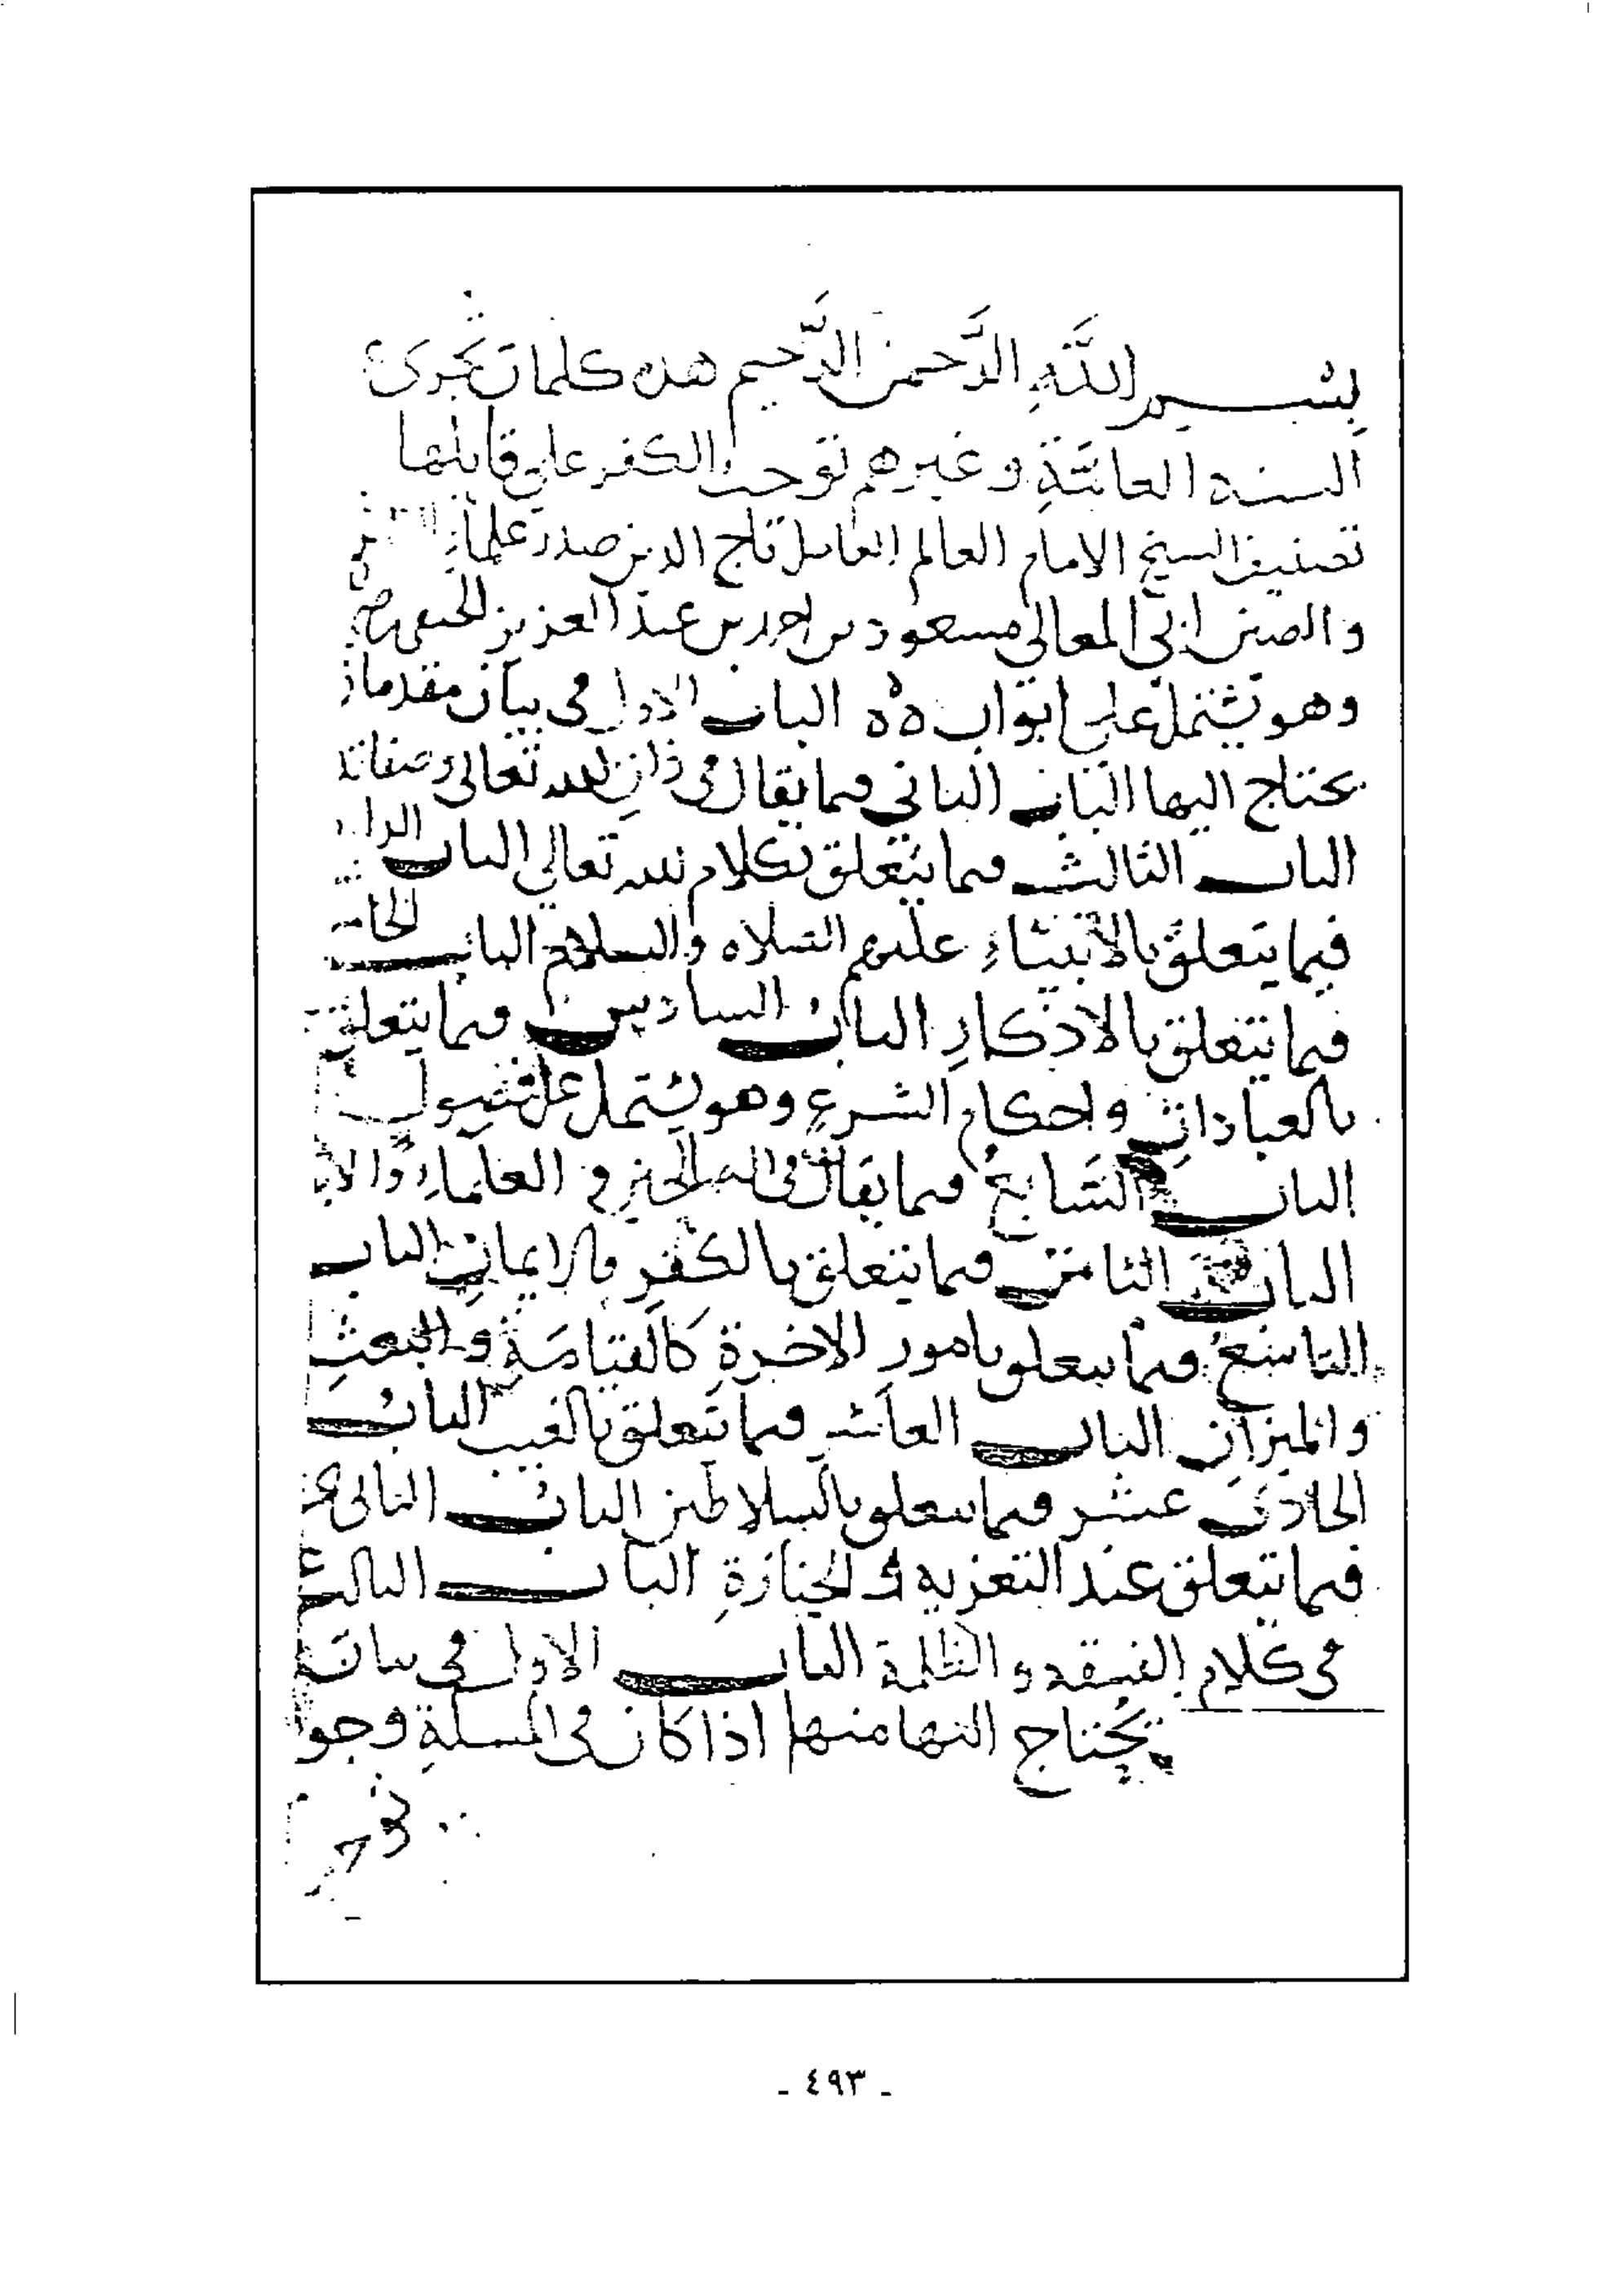 بسم اللَّهِ الرَّحمن الرَّحيم هده كلمات تجرى
السنه العامَّةِ وغيرهم توجب الكفر على قايلها
تصنيف الشيخ الامام العالم العامل تاج الدين صدر علماء
والصين ابى المعالي مسعود بن احمد بن عبد العزيز
وهو يشتمل على ابواب ه ه الباب الاول فى بيان مقدمات
يحتاج اليها الباب الثاني فيما يقال فى ذات الله تعالى وصفاته
الباب الثالث فيما يتعلق بكلام الله تعالي الباب الرابع
فيما يتعلق بالأنبياءِ عليهم الصلاه والسلام الباب الخامس
فيما يتعلق بالاذكارِ الباب السادس فيما يتعلق
بالعباداتِ واحكام الشرعِ وهو يشتمل على فصول
الباب السَّابعُ فيما يقال فى العلماءِ
الباب الثامن فيما يتعلق بالكفر والايمان الباب
التاسعُ فيما يتعلق بامور الاخرة كالقيامَةِ والبعثِ
والميزان الباب العاشر فيما يتعلق بالغيب الباب
الحادى عشر فيما يتعلق بالسلاطين الباب الثانى
فيما يتعلق عند التعزيه والجنازةِ الباب الثالث
فى كلام الفسقه والظلمة الباب الاول فى بيان
يحتاج اليها منها اذا كان فى المسلةِ وجوه
- ٤٩٣ -